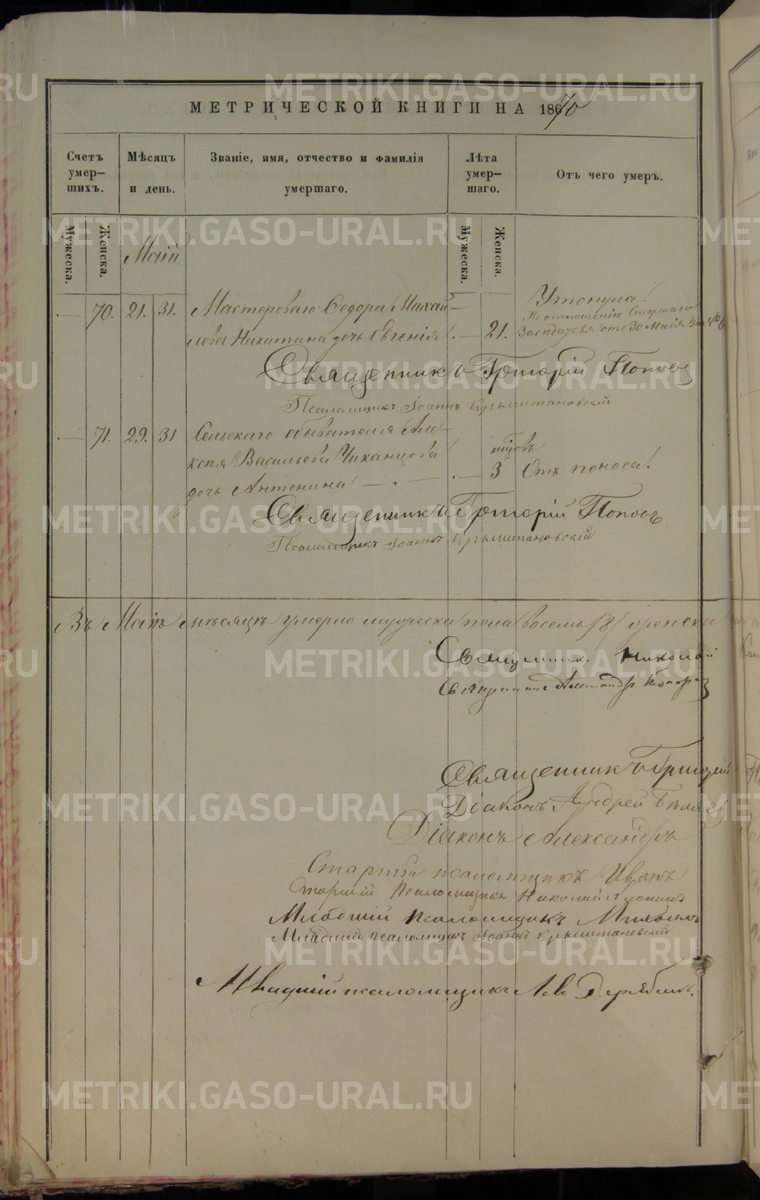 МЕТРИЧЕСКОЙ КНИГИ НА 1870
Счетъ умер-шихъ.
Мѣсяцъ и день.
Званіе, имя, отчество и фамилія умершаго.
Лѣта умер-шаго.
Отъ чего умеръ.
Мужеска. Женска.
Мужеска. Женска.
Маій
— 70. 21. 31. Мастероваго Ѳедора Михай-
лова Никитина дочь Евгенія. — 21. Утонула.
По отношенію
Священникъ Григорій Поповъ
Псаломщикъ Іоаннъ Крыштановскій
— 71. 29. 31 Сельскаго обывателя Але-
ксѣя Васильева Чиканцова
дочь Антонина — 3 Отъ поноса.
Священникъ Григорій Поповъ
Псаломщикъ Іоаннъ Крыштановскій
Въ Маѣ мѣсяцѣ умерло мужеска пола восемь /8/ женска
Священникъ Николай
Священникъ Александръ
Священникъ Григорій
Діаконъ Андрей
Діаконъ Александръ
Старшій псаломщикъ Иванъ
Старшій Псаломщикъ Николай
Младшій псаломщикъ
Младшій псаломщикъ Іоаннъ Крыштановскій
Младшій псаломщикъ Левъ Дерябинъ.
METRIKI.GASO-URAL.RU